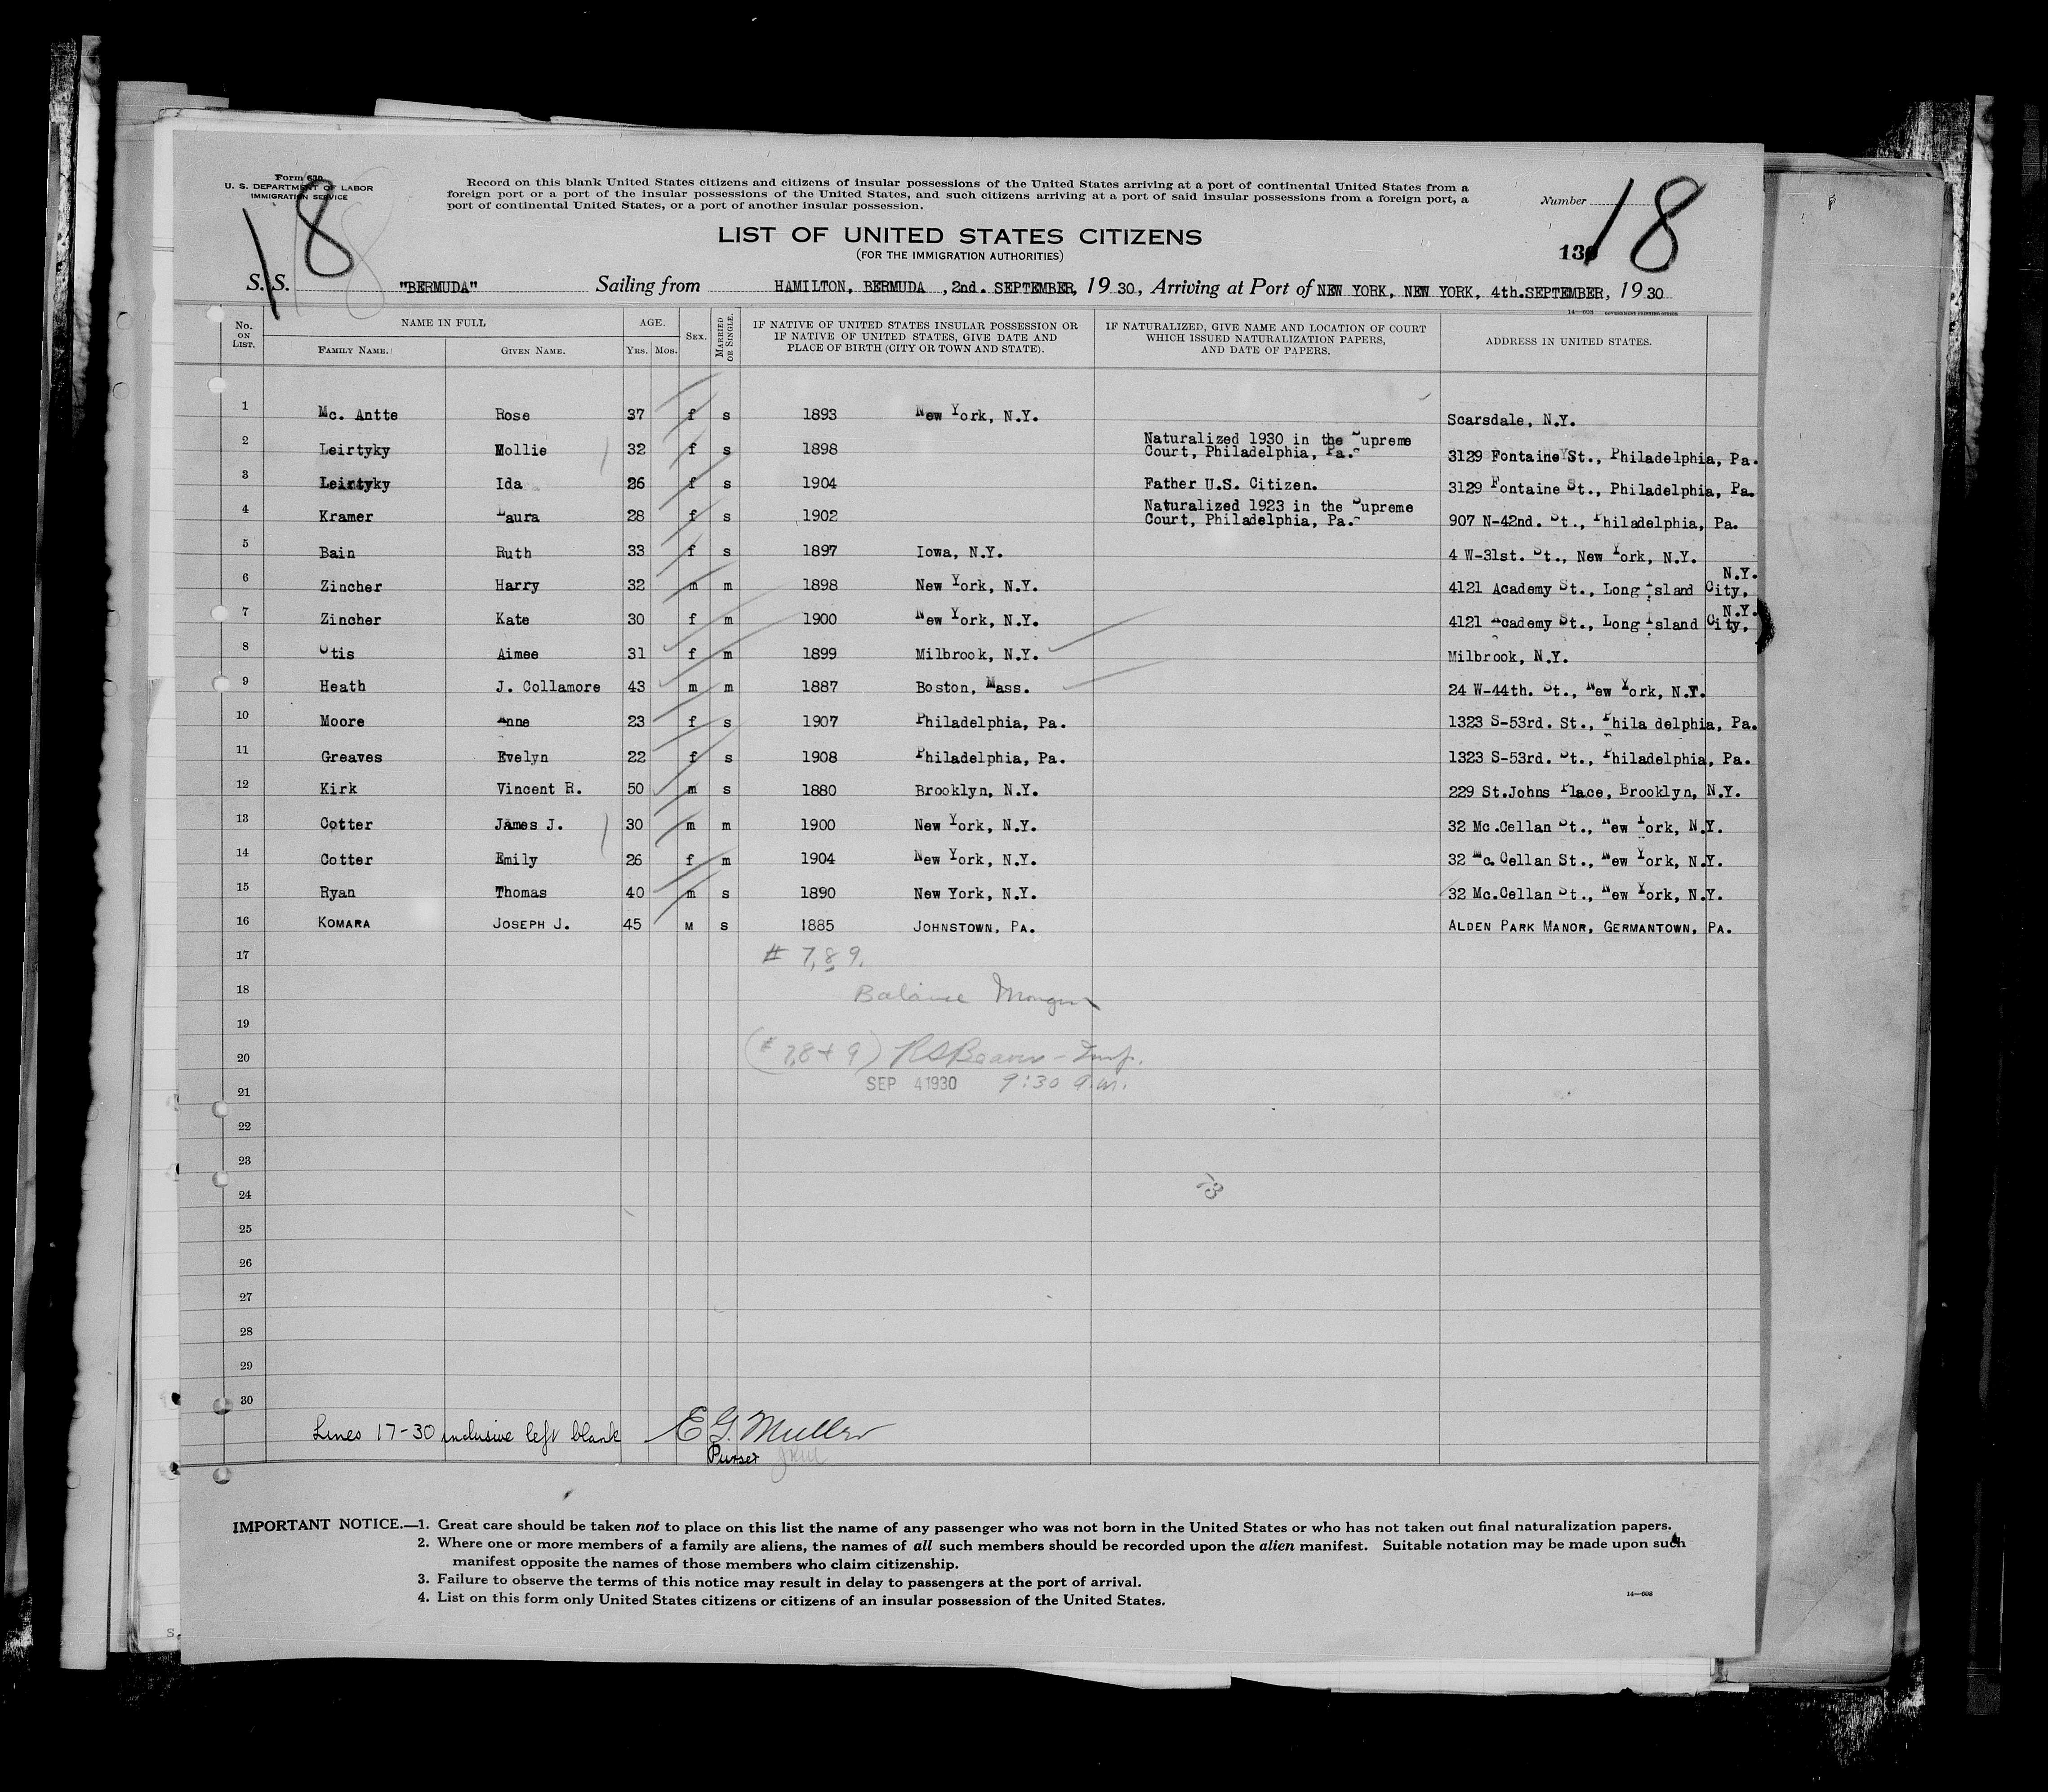 Form 630
U. S. DEPARTMENT OF LABOR
IMMIGRATION SERVICE
Record on this blank United States citizens and citizens of insular possessions of the United States arriving at a port of continental United States from a
foreign port or a port of the insular possessions of the United States, and such citizens arriving at a port of said insular possessions from a foreign port, a
port of continental United States, or a port of another insular possession.
Number
18
18
LIST OF UNITED STATES CITIZENS
(FOR THE IMMIGRATION AUTHORITIES)
S. S. "BERMUDA" Sailing from HAMILTON, BERMUDA , 2nd. SEPTEMBER, 1930, Arriving at Port of NEW YORK, NEW YORK, 4th.SEPTEMBER, 1930
14—608 GOVERNMENT PRINTING OFFICE
No. ON LIST. NAME IN FULL FAMILY NAME. GIVEN NAME. AGE. YRS. MOS. SEX. MARRIED OR SINGLE. IF NATIVE OF UNITED STATES INSULAR POSSESSION OR IF NATIVE OF UNITED STATES, GIVE DATE AND PLACE OF BIRTH (CITY OR TOWN AND STATE). IF NATURALIZED, GIVE NAME AND LOCATION OF COURT WHICH ISSUED NATURALIZATION PAPERS, AND DATE OF PAPERS. ADDRESS IN UNITED STATES.
1 Mc. Antte Rose 37 f s 1893 New York, N.Y. Scarsdale, N.Y.
2 Leirtyky Mollie 32 f s 1898 Naturalized 1930 in the Supreme Court, Philadelphia, Pa. 3129 Fontaine St., Philadelphia, Pa.
3 Leirtyky Ida 26 f s 1904 Father U.S. Citizen. 3129 Fontaine St., Philadelphia, Pa.
4 Kramer Laura 28 f s 1902 Naturalized 1923 in the Supreme Court, Philadelphia, Pa. 907 N-42nd. St., Philadelphia, Pa.
5 Bain Ruth 33 f s 1897 Iowa, N.Y. 4 W-31st. St., New York, N.Y.
6 Zincher Harry 32 m m 1898 New York, N.Y. 4121 Academy St., Long Island City, N.Y.
7 Zincher Kate 30 f m 1900 New York, N.Y. 4121 Academy St., Long Island City, N.Y.
8 Otis Aimee 31 f m 1899 Milbrook, N.Y. Milbrook, N.Y.
9 Heath J. Collamore 43 m m 1887 Boston, Mass. 24 W-44th. St., New York, N.Y.
10 Moore Anne 23 f s 1907 Philadelphia, Pa. 1323 S-53rd. St., Phila delphia, Pa.
11 Greaves Evelyn 22 f s 1908 Philadelphia, Pa. 1323 S-53rd. St., Philadelphia, Pa.
12 Kirk Vincent R. 50 m s 1880 Brooklyn, N.Y. 229 St.Johns Place, Brooklyn, N.Y.
13 Cotter James J. 30 m m 1900 New York, N.Y. 32 Mc.Cellan St., New York, N.Y.
14 Cotter Emily 26 f m 1904 New York, N.Y. 32 Mc. Cellan St., New York, N.Y.
15 Ryan Thomas 40 m s 1890 New York, N.Y. 32 Mc.Cellan St., New York, N.Y.
16 KOMARA JOSEPH J. 45 M S 1885 JOHNSTOWN, PA. ALDEN PARK MANOR, GERMANTOWN, PA.
17 # 7, 8, 9.
18 Balance
19
20 (# 7,8 + 9)
21 SEP 4 1930 9:30 a.m.
22
23
24
25
26
27
28
29
30
Lines 17-30 inclusive left blank E G. Muller
Purser
IMPORTANT NOTICE.—1. Great care should be taken not to place on this list the name of any passenger who was not born in the United States or who has not taken out final naturalization papers.
2. Where one or more members of a family are aliens, the names of all such members should be recorded upon the alien manifest. Suitable notation may be made upon such
manifest opposite the names of those members who claim citizenship.
3. Failure to observe the terms of this notice may result in delay to passengers at the port of arrival.
4. List on this form only United States citizens or citizens of an insular possession of the United States.
14—608